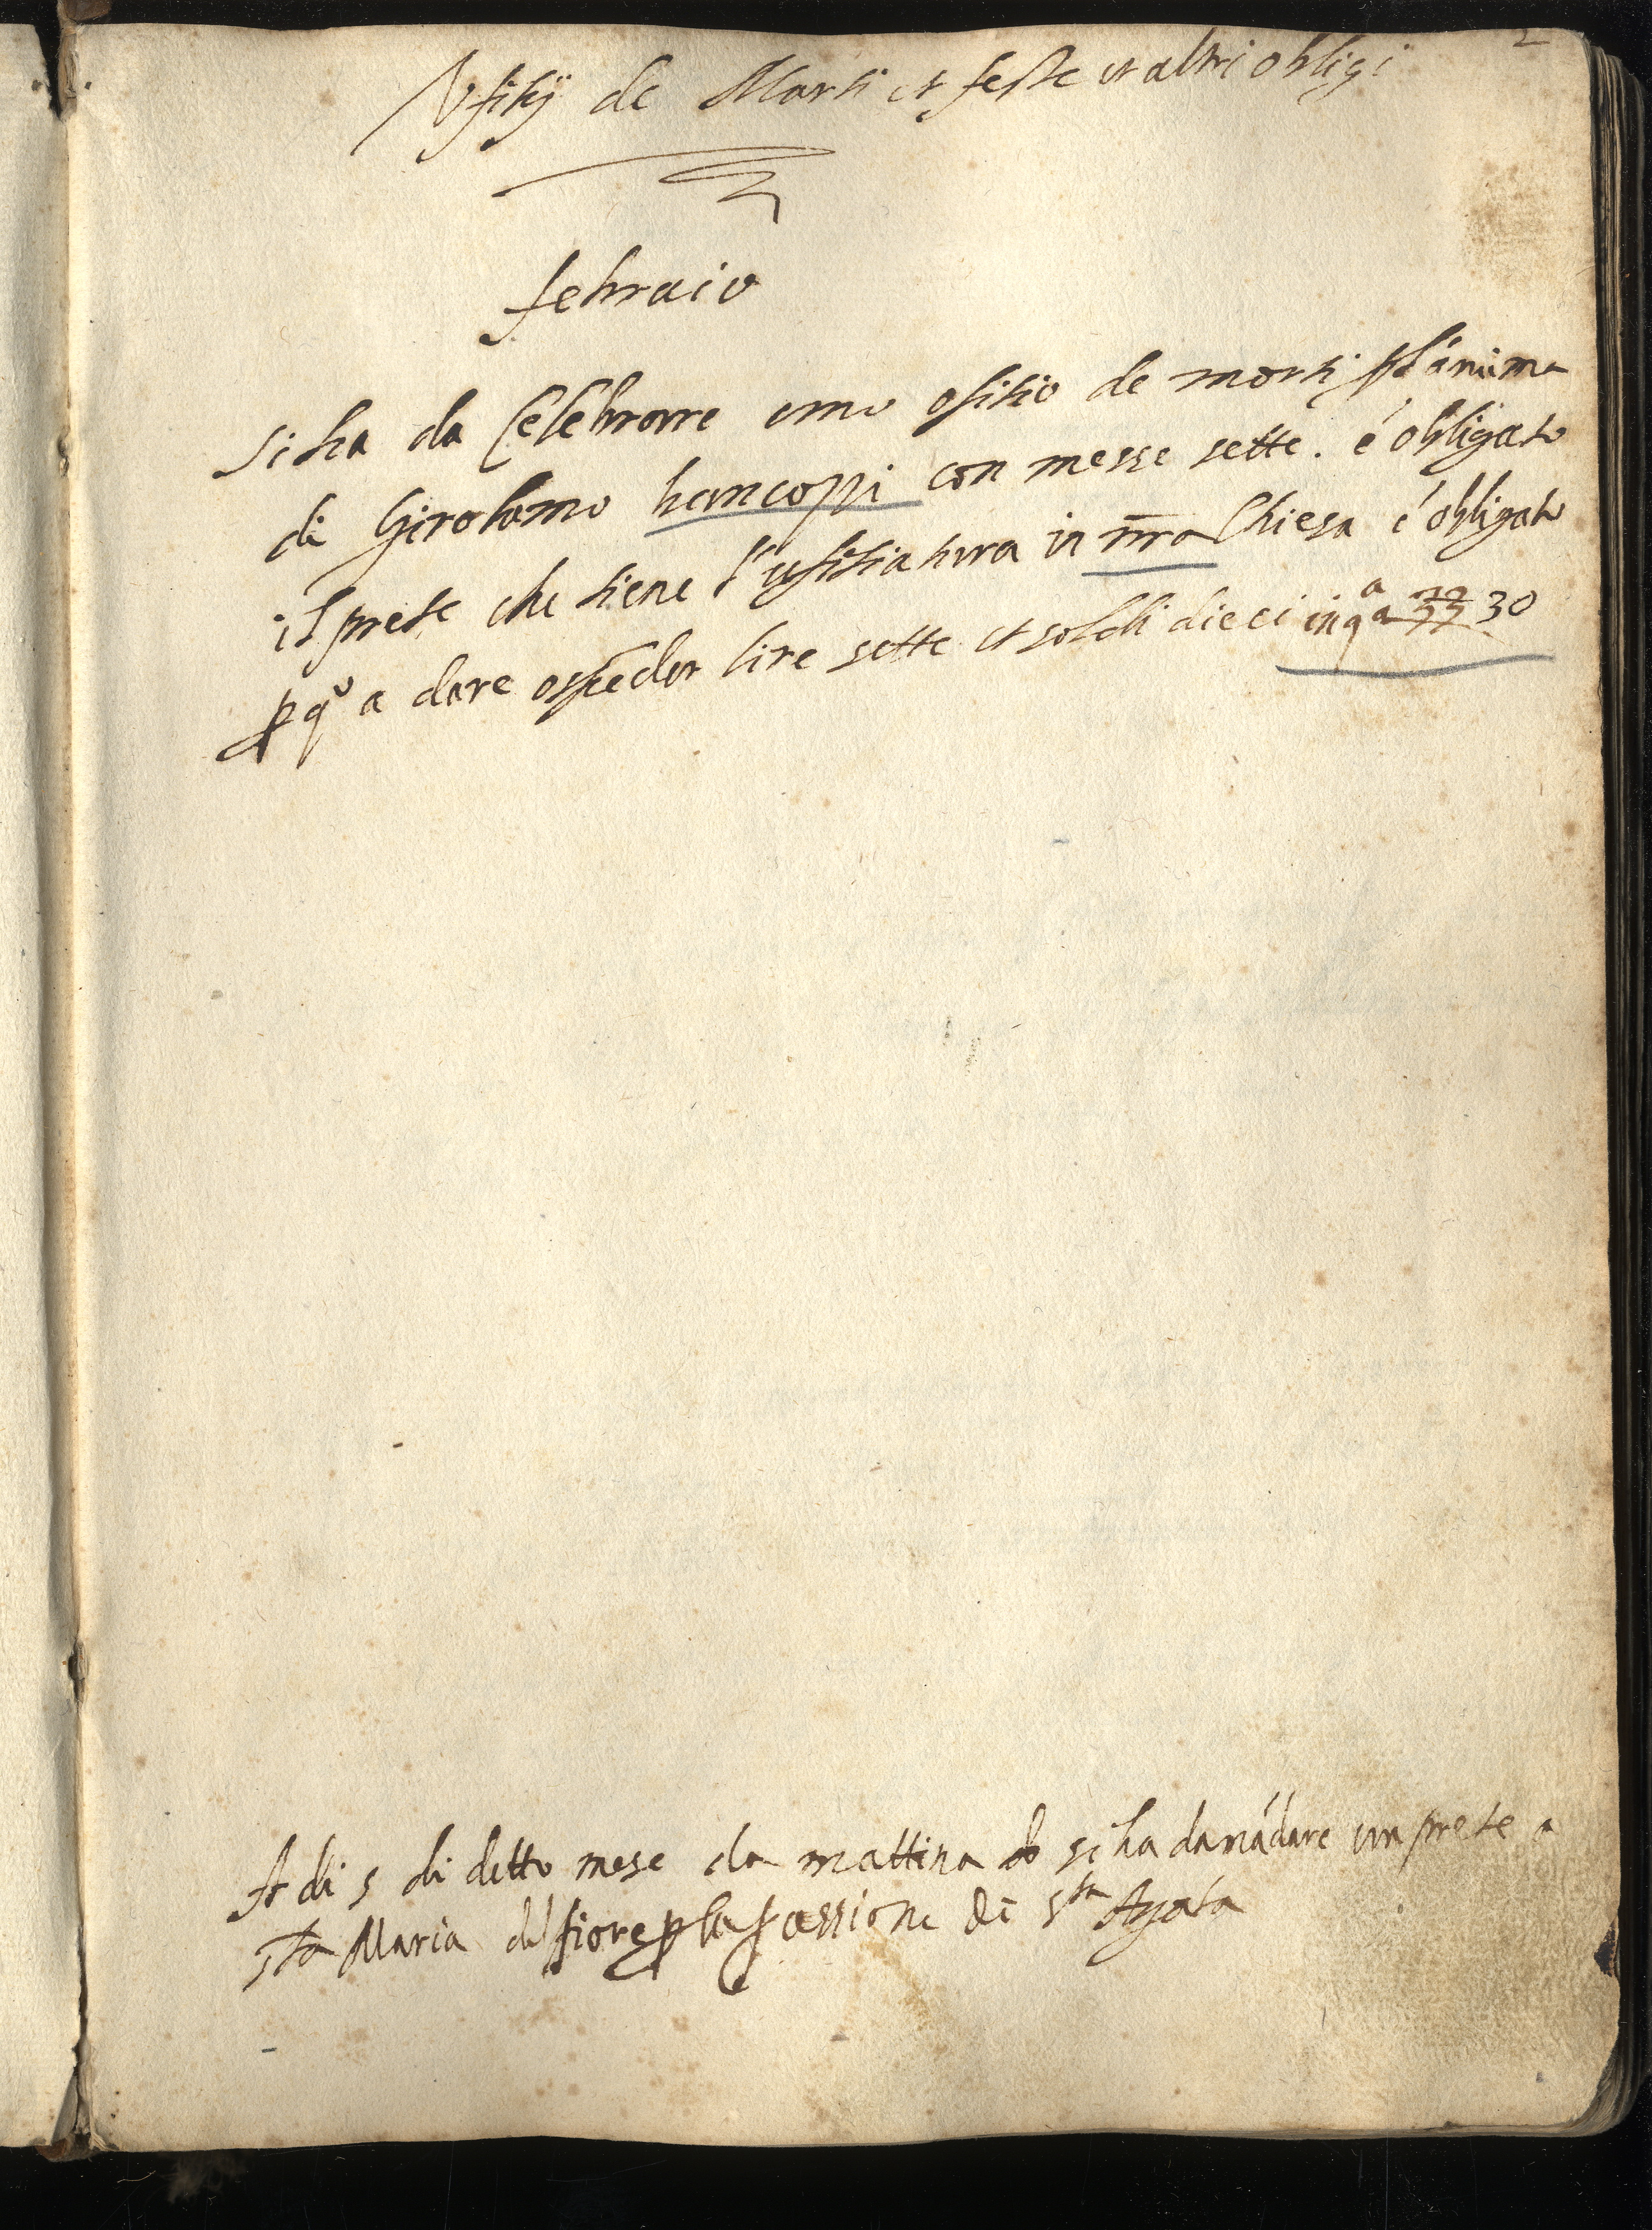 2
Vfitij de Morti et feste et altri obligi
febraio
Si ha da Celebrare uno ofitio de morti p l'anima
di Girolamo bencoppi con messe sette. é obligato
il prete che tiene l'ufitiatura in nra Chiesa é obligato
p qo a dare
lire sette et soldi dieci in qa a 30
A di 5 di detto mese la mattina si ha da mādare un prete a
sta Maria del fiore p la passione di sta Agata